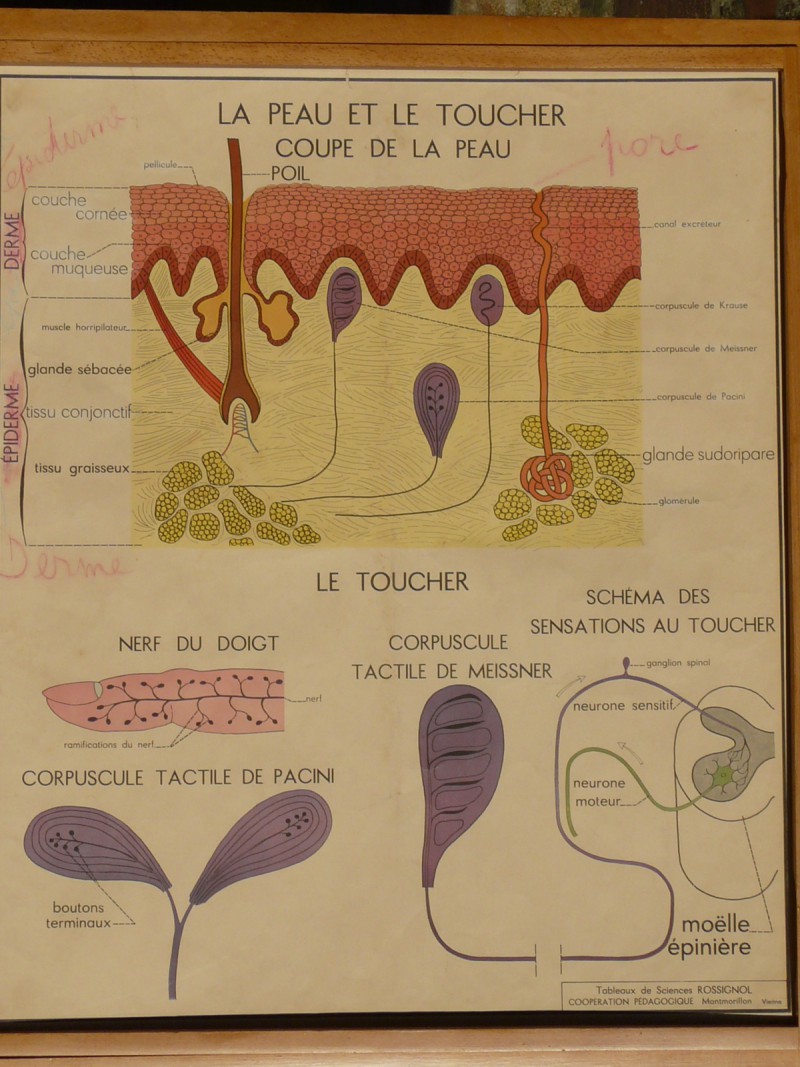 LA PEAU ET LE TOUCHER
COUPE DE LA PEAU
épiderme
pore
pellicule
POIL
couche
cornée
DERME
couche
muqueuse
canal excréteur
corpuscule de Krause
muscle horripilateur
corpuscule de Meissner
glande sébacée
corpuscule de Pacini
tissu conjonctif
ÉPIDERME
glande sudoripare
tissu graisseux
glomérule
Derme
LE TOUCHER
SCHÉMA DES
SENSATIONS AU TOUCHER
NERF DU DOIGT
CORPUSCULE
TACTILE DE MEISSNER
ganglion spinal
nerf
neurone sensitif
ramifications du nerf
CORPUSCULE TACTILE DE PACINI
neurone
moteur
boutons
terminaux
moëlle
épinière
Tableaux de Sciences ROSSIGNOL
COOPÉRATION PÉDAGOGIQUE Montmorillon Vienne